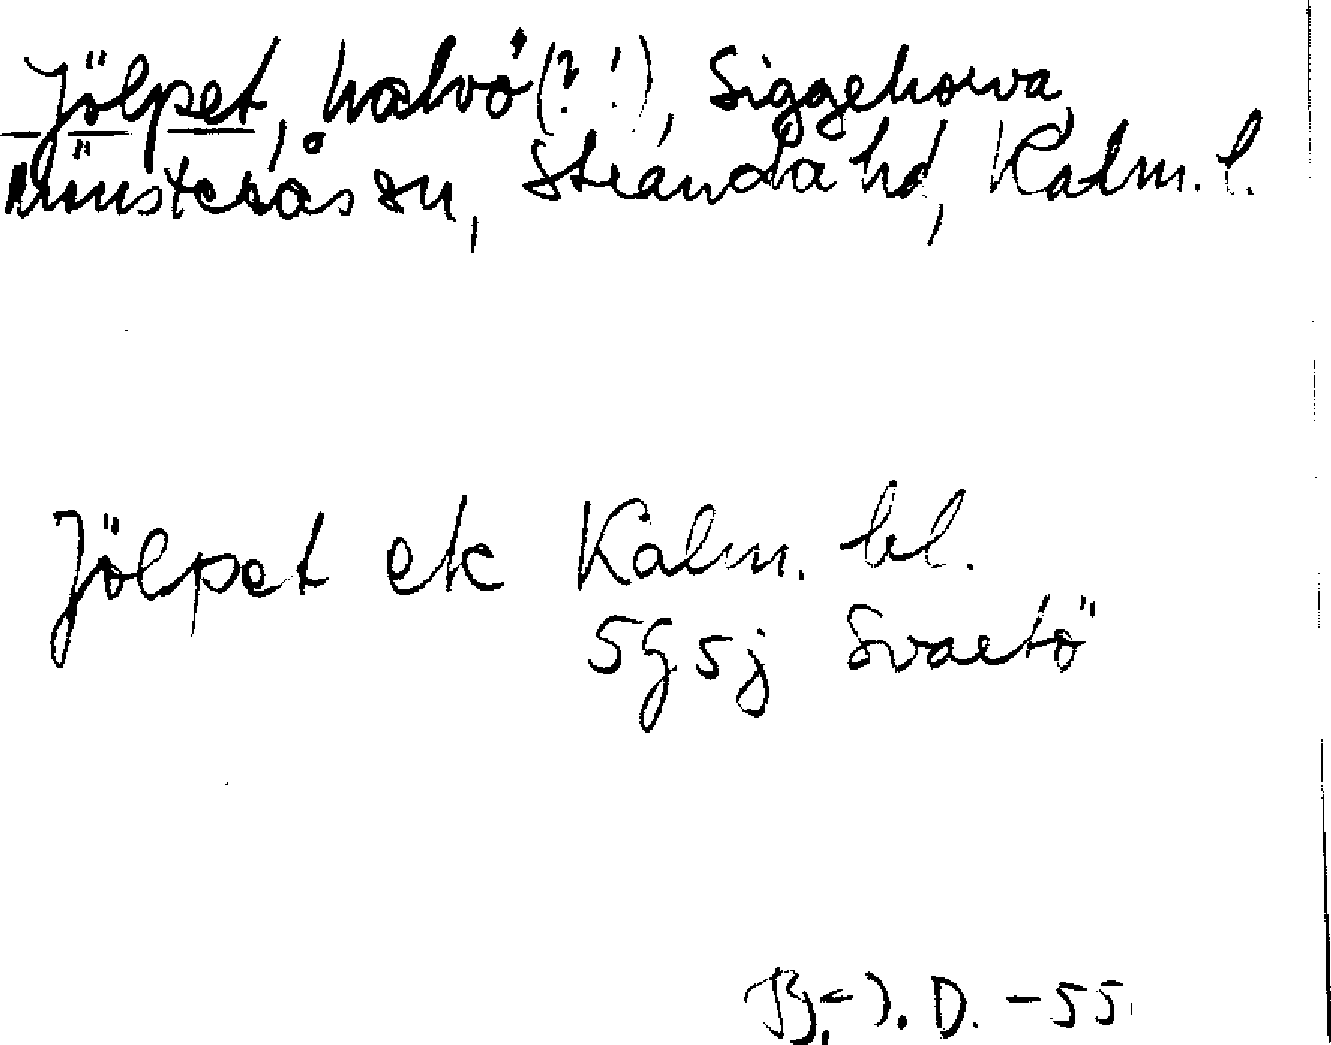 Jölpet, halvö (?!), Siggehorva,
Mönsterås sn, Stranda hd, Kalm. l.
Jölpet ek Kalm. bl.
5G5j Svartö
D. -55